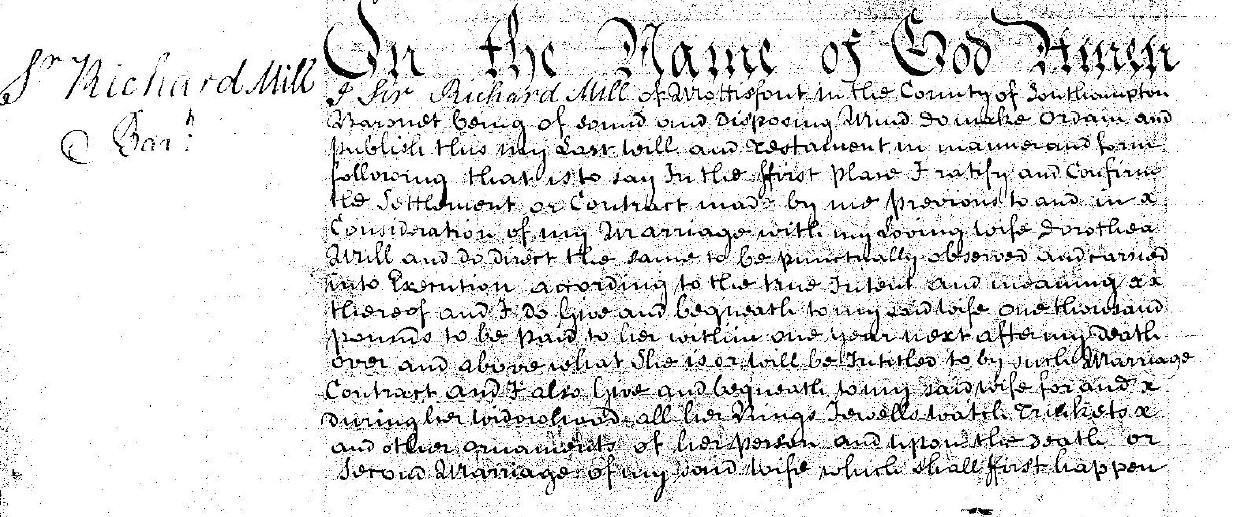 Sr Richard Mill
Bart
In the Name of God Amen
I Sir Richard Mill of Mottisfont in the County of Southampton
Baronet being of sound and disposing Mind do make Ordain and
publish this my Last Will and Testament in manner and form
following that is to say In the ffirst place I ratify and Confirm
the Settlement or Contract made by me previous to and in x
Consideration of my Marriage with my Loving wife Dorothea
Mill and do direct the same to be punctually observed and carried
into Execution according to the true Intent and meaning xx
thereof and I do Give and bequeath to my said wife One thousand
pounds to be paid to her within one year next after my Death
over and above what She is or will be Intitled to by such Marriage
Contract and I also Give and bequeath to my said wife for and x
during her widowhood all her Rings Jewells watch Trinkets x
and other ornaments of her person and upon the Death or
Second Marriage of my said wife which shall ffirst happen